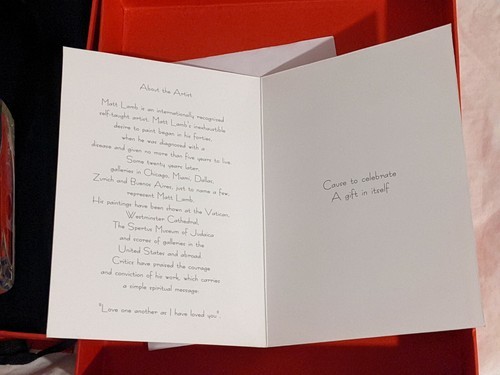 About the Artist
Matt Lamb is an internationally recognized
self-taught artist. Matt Lamb's inexhaustible
desire to paint began in his forties,
when he was diagnosed with a
disease and given no more than five years to live.
Some twenty years later,
galleries in Chicago, Miami, Dallas,
Zurich and Buenos Aires, just to name a few,
represent Matt Lamb.
His paintings have been shown at the Vatican,
Westminster Cathedral,
The Spertus Museum of Judaica
and scores of galleries in the
United States and abroad.
Critics have praised the courage
and conviction of his work, which carries
a simple spiritual message:
"Love one another as I have loved you".
Cause to celebrate
A gift in itself